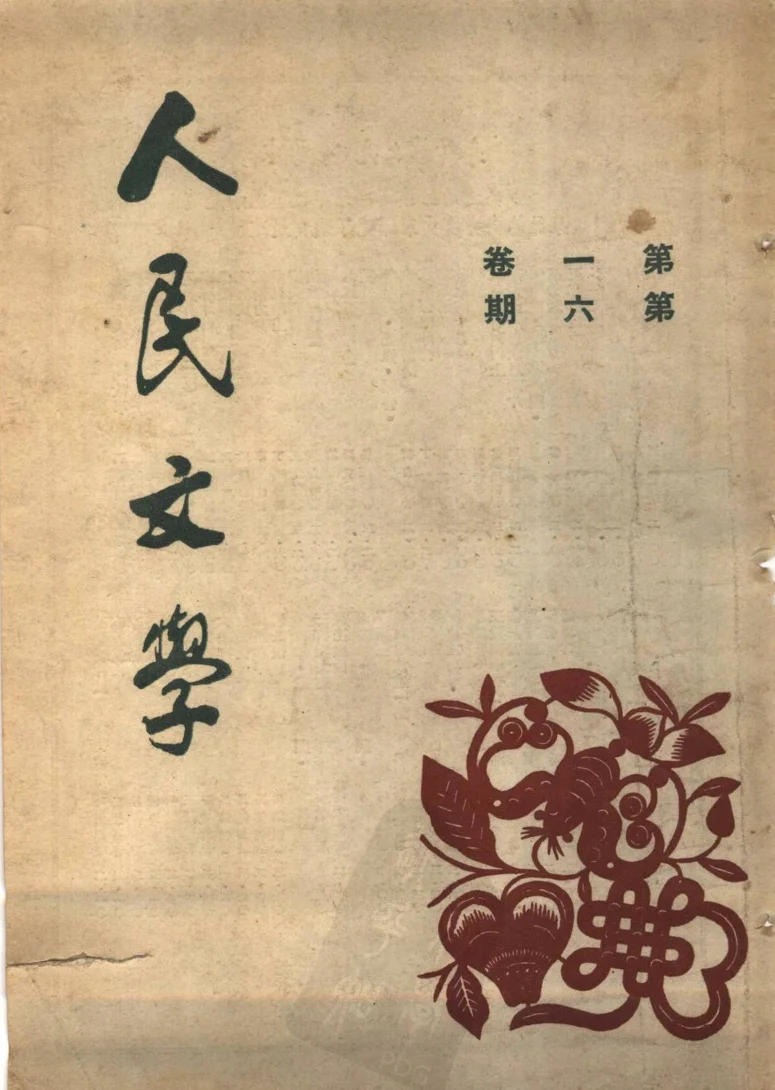 人民文學
第一卷
第六期